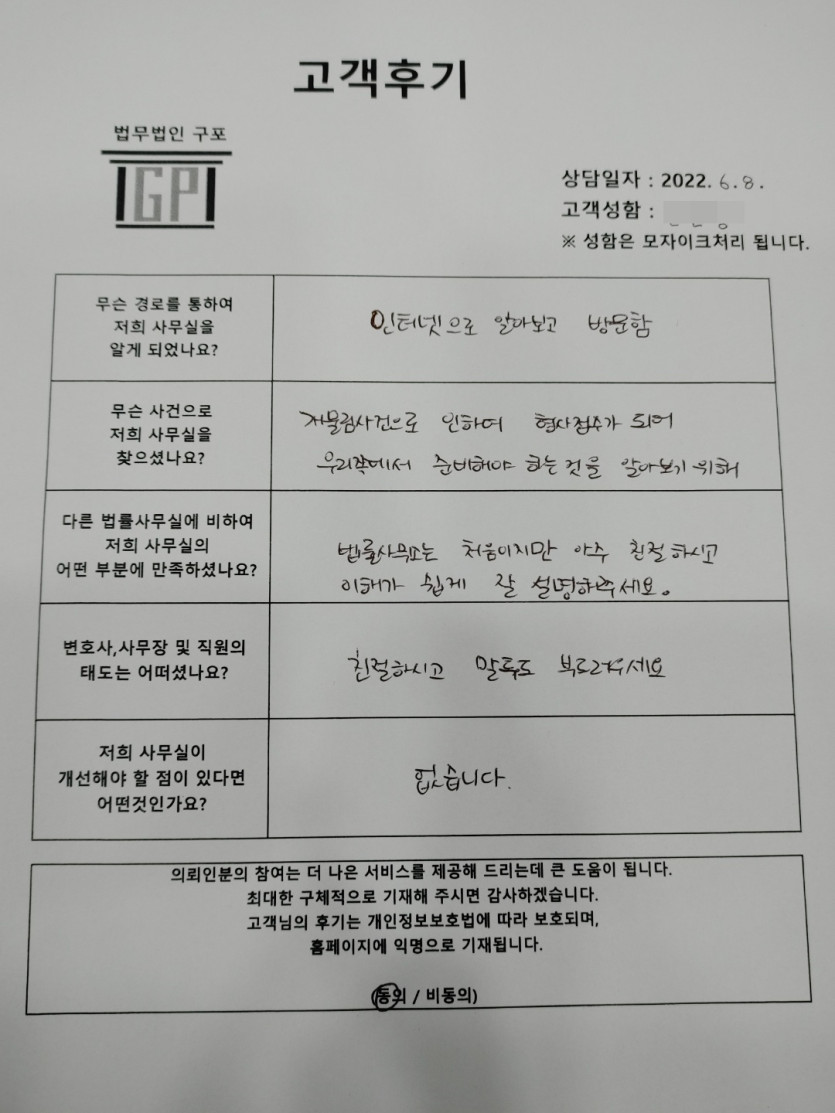 고객후기
법무법인 구포
GP
상담일자 : 2022. 6. 8.
고객성함 :
※ 성함은 모자이크처리 됩니다.
무슨 경로를 통하여
저희 사무실을
알게 되었나요?
인터넷으로 알아보고 방문함
무슨 사건으로
저희 사무실을
찾으셨나요?
개물림사건으로 인하여 형사접수가 되어
우리쪽에서 준비해야 하는것을 알아보기 위해
다른 법률사무실에 비하여
저희 사무실의
어떤 부분에 만족하셨나요?
법률사무소는 처음이지만 아주 친절하시고
이해가 쉽게 잘 설명해주세요.
변호사,사무장 및 직원의
태도는 어떠셨나요?
친절하시고 말투도 부드러우세요
저희 사무실이
개선해야 할 점이 있다면
어떤것인가요?
없습니다.
의뢰인분의 참여는 더 나은 서비스를 제공해 드리는데 큰 도움이 됩니다.
최대한 구체적으로 기재해 주시면 감사하겠습니다.
고객님의 후기는 개인정보보호법에 따라 보호되며,
홈페이지에 익명으로 기재됩니다.
(동의 / 비동의)